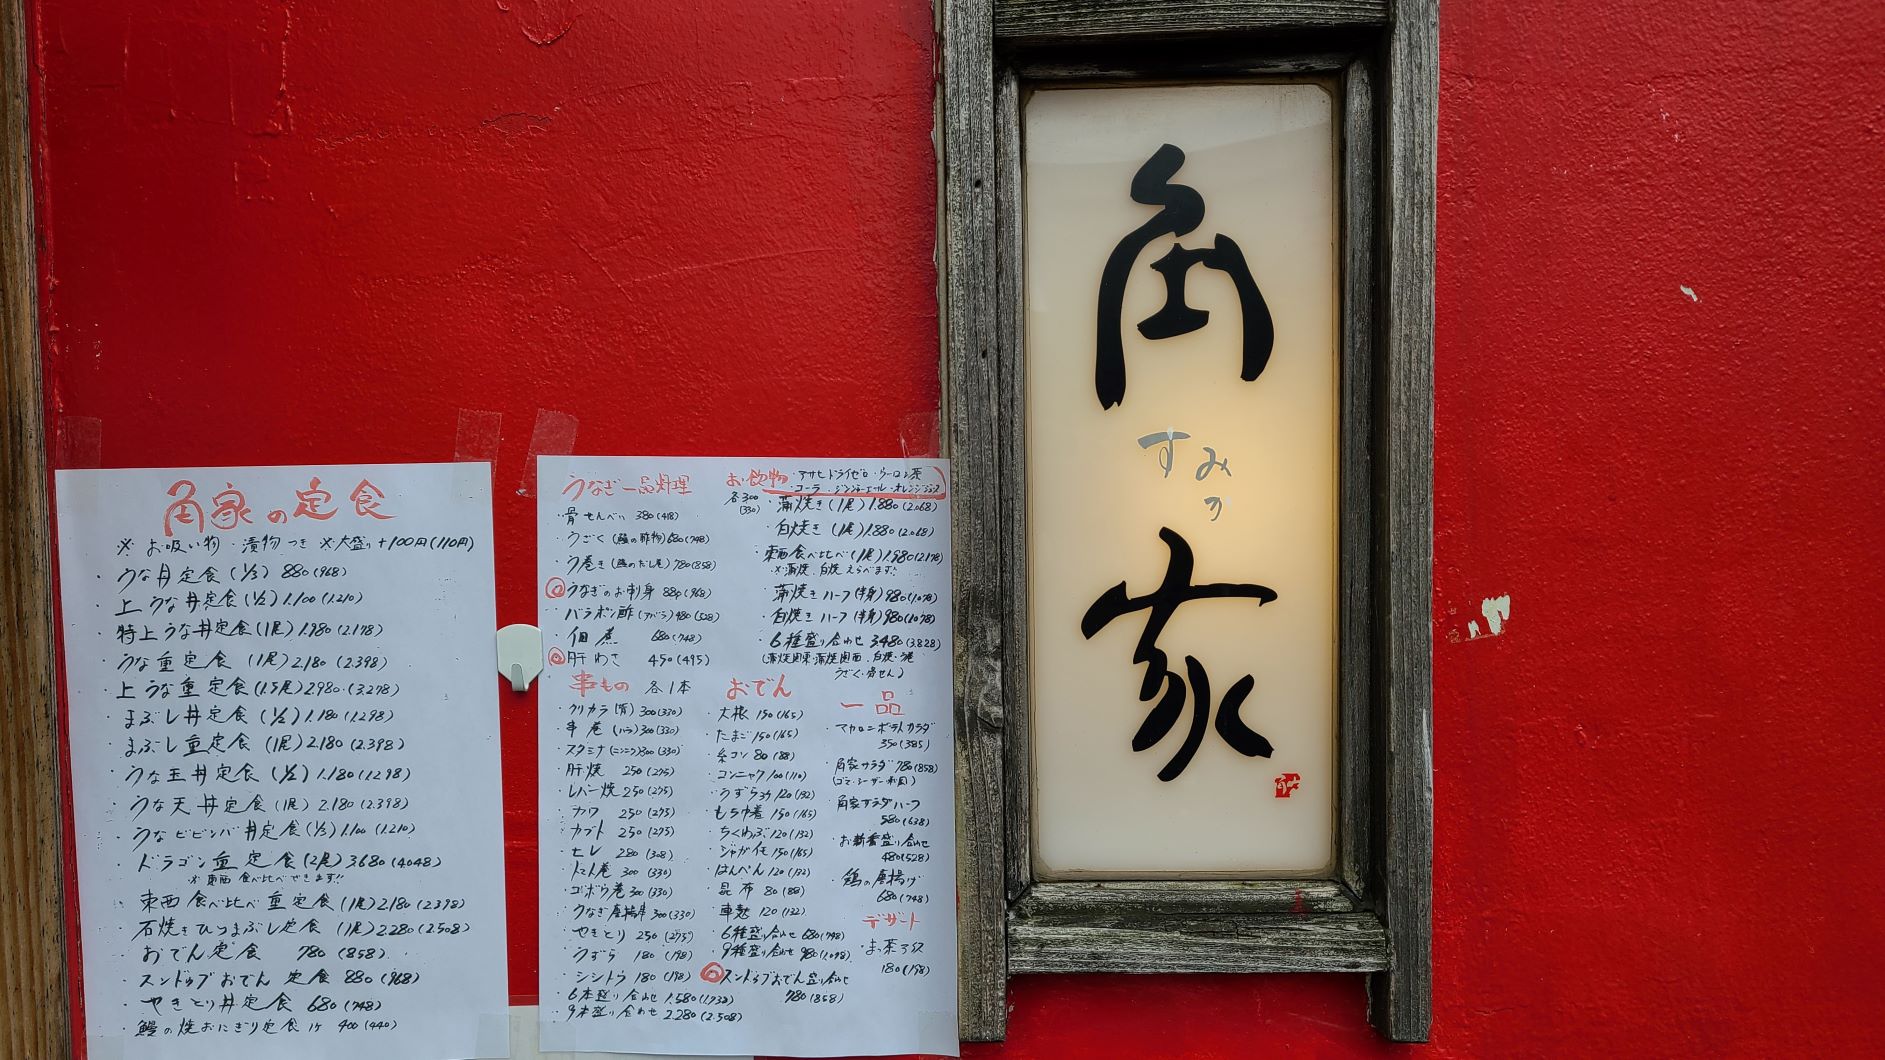 角家の定食
※ お吸い物・漬物つき ※大盛り+100円(110円)
・うな丼定食(1/3) 880(968)
・上うな丼定食(1/2) 1.100(1.210)
・特上うな丼定食(1尾) 1.980(2.178)
・うな重定食 (1尾) 2.180 (2.398)
・上うな重定食 (1.5尾) 2980.(3.278)
・まぶし丼定食 (1/2) 1.180(1.298)
・まぶし重定食 (1尾) 2.180 (2.398)
・うな玉丼定食 (1/2) 1.180(1.298)
・うな天丼定食 (1尾) 2.180(2.398)
・うなビビンバ丼定食(1/3) 1.100 (1.210)
・ドラゴン重定食(2尾) 3.680(4.048)
※東西食べ比べできます!!
・東西食べ比べ重定食(1尾) 2.180(2.398)
・石焼きひつまぶし定食 (1尾) 2.280(2.508)
・おでん定食 780(858)
・スンドゥブおでん定食 880(968)
・やきとり丼定食 680(748)
・鰻の焼おにぎり定食 1ヶ 400(440)
うなぎ一品料理
・骨せんべい 380(418)
・うざく(鰻の酢物) 680(748)
・う巻き(鰻のだし巻) 780(858)
うなぎのお刺身 880(968)
バラポン酢(アバラ) 480(528)
・佃煮 680(748)
肝わさ 450(495)
お飲物 ・アサヒドライゼロ・ウーロン茶
・コーラ・ジンジャーエール・オレンジジュース
各300
(330)
・蒲焼き(1尾) 1.880(2.068)
・白焼き(1尾) 1.880(2.068)
・東西食べ比べ(1尾) 1.980(2.178)
※蒲焼、白焼えらべます!
・蒲焼きハーフ(半身) 980(1.078)
・白焼きハーフ(半身) 980(1.078)
・6種盛り合わせ 3.480(3.828)
(蒲焼関東・蒲焼関西・白焼・う巻
うざく・骨せん)
串もの 各1本
・クリカラ(背) 300(330)
・串巻 (バラ) 300(330)
・スタミナ(ニンニク) 300(330)
・肝焼 250(275)
・レバー焼 250(275)
・カワ 250(275)
・カブト 250(275)
・ヒレ 280(308)
・トマト巻 300(330)
・ゴボウ巻 300(330)
・うなぎ唐揚串 300(330)
・やきとり 250(275)
・うずら 180(198)
・シシトウ 180(198)
・6本盛り合わせ 1.580(1.738)
・9本盛り合わせ 2.280(2.508)
おでん
・大根 150(165)
・たまご 150(165)
・糸コン 80(88)
・コンニャク 100(110)
・うずら 120(132)
・もち巾着 150(165)
・ちくわぶ 120(132)
・ジャガイモ 150(165)
・はんぺん 120(132)
・昆布 80(88)
・車麩 120(132)
・6種盛り合わせ 680(748)
・9種盛り合わせ 980(1.078)
スンドゥブおでん盛り合わせ
780(858)
一品
・マカロニポテトサラダ
350(385)
・角家サラダ 780(858)
(ゴマ・シーザー・和風)
・角家サラダハーフ
580(638)
・お新香盛り合わせ
480(528)
・鶏の唐揚げ
680(748)
デザート
・まっ茶アイス
180(198)
角
すみ
か
家